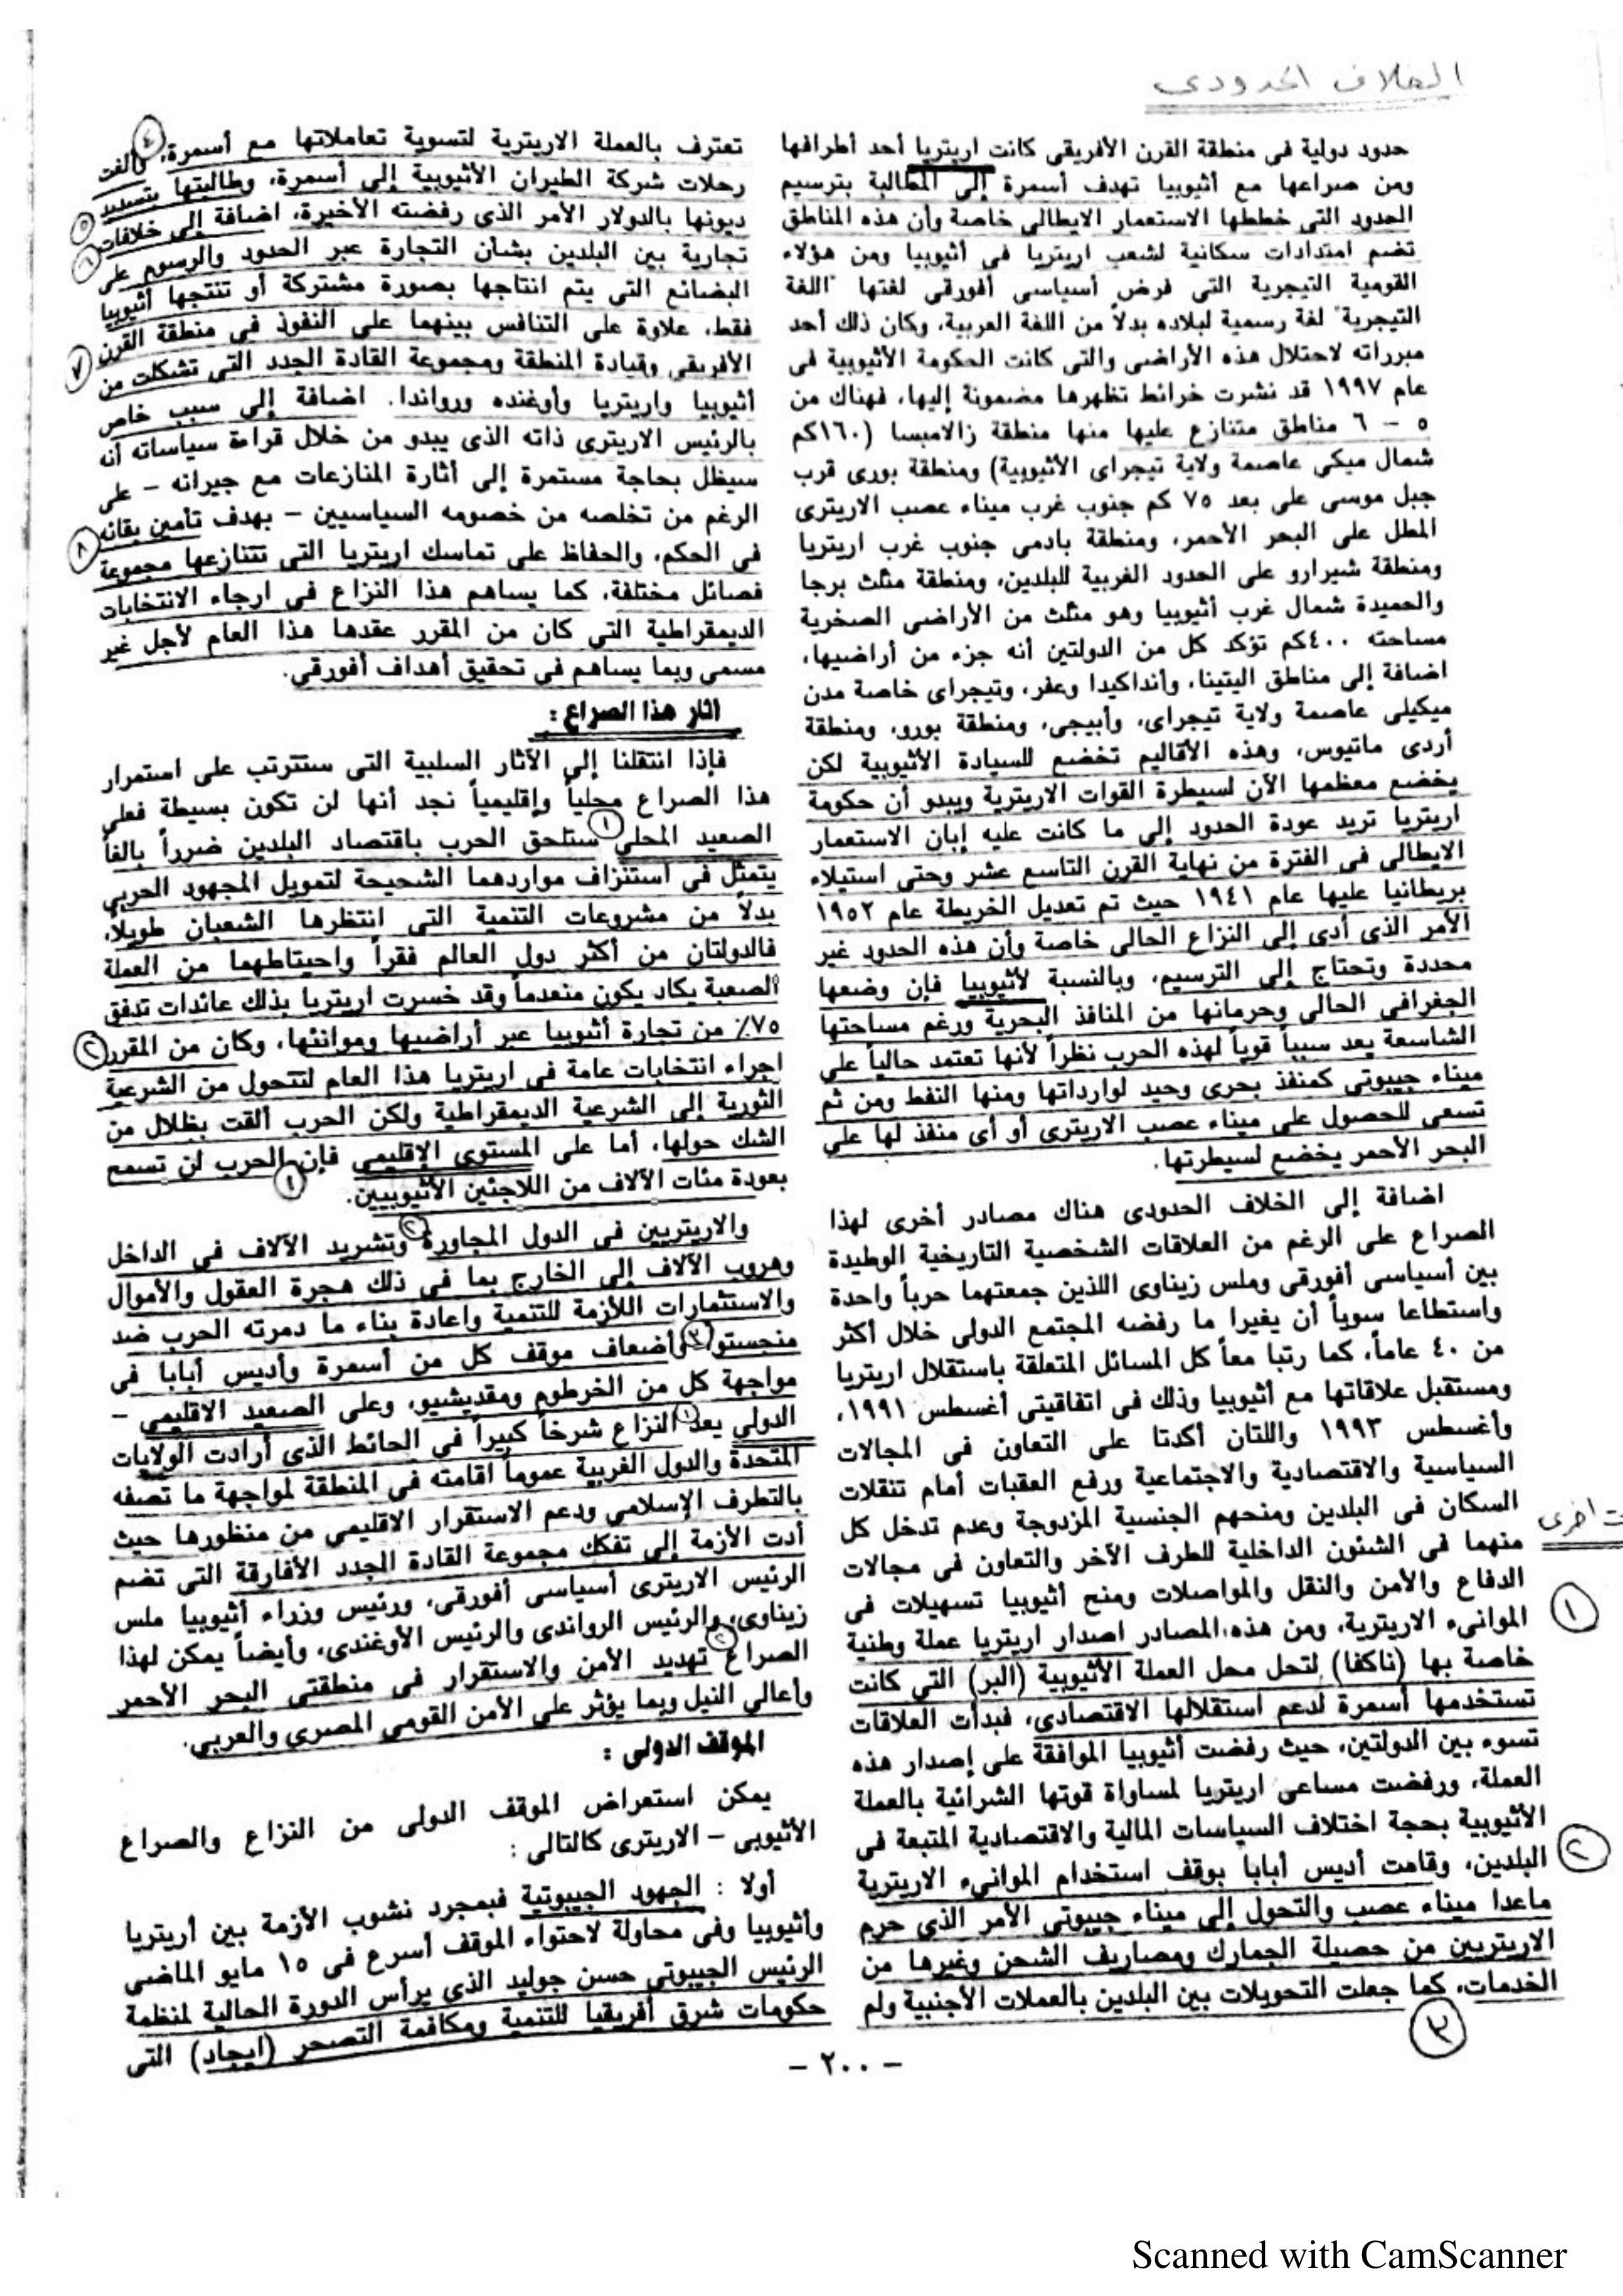 الخلاف الحدودى
حدود دولية فى منطقة القرن الأفريقى كانت اريتريا أحد أطرافها
ومن صراعها مع أثيوبيا تهدف أسمرة إلى المطالبة بترسيم
الحدود التى خططها الاستعمار الايطالى خاصة وأن هذه المناطق
تضم امتدادات سكانية لشعب اريتريا فى أثيوبيا ومن هؤلاء
القومية التيجرية التى فرض أسياسى أفورقى لغتها "اللغة
التيجرية" لغة رسمية لبلاده بدلاً من اللغة العربية، وكان ذلك أحد
مبرراته لاحتلال هذه الأراضى والتى كانت الحكومة الأثيوبية فى
عام ١٩٩٧ قد نشرت خرائط تظهرها مضمونة إليها، فهناك من
٥ - ٦ مناطق متنازع عليها منها منطقة زالامبسا (١٦٠كم
شمال ميكى عاصمة ولاية تيجراى الأثيوبية) ومنطقة بورى قرب
جبل موسى على بعد ٧٥ كم جنوب غرب ميناء عصب الاريترى
المطل على البحر الأحمر، ومنطقة بادمى جنوب غرب اريتريا
ومنطقة شيرارو على الحدود الغربية للبلدين، ومنطقة مثلث يرجا
والحميدة شمال غرب أثيوبيا وهو مثلث من الأراضى الصخرية
مساحته ٤٠٠كم تؤكد كل من الدولتين أنه جزء من أراضيها،
اضافة إلى مناطق اليتينا، وأنداكيدا وعفر، وتيجراى خاصة مدن
ميكيلى عاصمة ولاية تيجراى، وأبيجى، ومنطقة بورو، ومنطقة
أردى ماتيوس، وهذه الأقاليم تخضع للسيادة الأثيوبية لكن
يخضع معظمها الآن لسيطرة القوات الاريترية ويبدو أن حكومة
اريتريا تريد عودة الحدود إلى ما كانت عليه إبان الاستعمار
الايطالى فى الفترة من نهاية القرن التاسع عشر وحتى استيلاء
بريطانيا عليها عام ١٩٤١ حيث تم تعديل الخريطة عام ١٩٥٢
الأمر الذى أدى إلى النزاع الحالى خاصة وأن هذه الحدود غير
محددة وتحتاج إلى الترسيم، وبالنسبة لأثيوبيا فإن وضعها
الجغرافى الحالى وحرمانها من المنافذ البحرية ورغم مساحتها
الشاسعة يعد سبباً قوياً لهذه الحرب نظراً لأنها تعتمد حالياً على
ميناء جيبوتى كمنفذ بحرى وحيد لوارداتها ومنها النفط ومن ثم
تسعى للحصول على ميناء عصب الاريترى أو أى منفذ لها على
البحر الأحمر يخضع لسيطرتها.
اضافة إلى الخلاف الحدودى هناك مصادر أخرى لهذا
الصراع على الرغم من العلاقات الشخصية التاريخية الوطيدة
بين أسياسى أفورقى وملس زيناوى اللذين جمعتهما حرباً واحدة
واستطاعا سوياً أن يغيرا ما رفضه المجتمع الدولى خلال أكثر
من ٤٠ عاماً، كما رتبا معاً كل المسائل المتعلقة باستقلال اريتريا
ومستقبل علاقاتها مع أثيوبيا وذلك فى اتفاقيتى أغسطس ١٩٩١،
وأغسطس ١٩٩٣ واللتان أكدتا على التعاون فى المجالات
السياسية والاقتصادية والاجتماعية ورفع العقبات أمام تنقلات
السكان فى البلدين ومنحهم الجنسية المزدوجة وعدم تدخل كل
اخرى
منهما فى الشئون الداخلية للطرف الآخر والتعاون فى مجالات
الدفاع والأمن والنقل والمواصلات ومنح أثيوبيا تسهيلات فى
الموانىء الاريترية، ومن هذه المصادر اصدار اريتريا عملة وطنية
١
خاصة بها (ناكفا) لتحل محل العملة الأثيوبية (البر) التى كانت
تستخدمها أسمرة لدعم استقلالها الاقتصادى، فبدأت العلاقات
تسوء بين الدولتين، حيث رفضت أثيوبيا الموافقة على إصدار هذه
العملة، ورفضت مساعى اريتريا لمساواة قوتها الشرائية بالعملة
الأثيوبية بحجة اختلاف السياسات المالية والاقتصادية المتبعة فى
البلدين، وقامت أديس أبابا بوقف استخدام الموانىء الاريترية
٢
ماعدا ميناء عصب والتحول إلى ميناء جيبوتى الأمر الذى حرم
الاريتريين من حصيلة الجمارك ومصاريف الشحن وغيرها من
الخدمات، كما جعلت التحويلات بين البلدين بالعملات الأجنبية ولم
٣
تعترف بالعملة الاريترية لتسوية تعاملاتها مع أسمرة، ٤ وألغت
رحلات شركة الطيران الأثيوبية إلى أسمرة، وطالبتها بتسديد
ديونها بالدولار الأمر الذى رفضته الأخيرة، اضافة إلى خلافات ٥
تجارية بين البلدين بشأن التجارة عبر الحدود والرسوم على ٦
البضائع التى يتم انتاجها بصورة مشتركة أو تنتجها أثيوبيا
فقط، علاوة على التنافس بينهما على النفوذ فى منطقة القرن
الأفريقى وقيادة المنطقة ومجموعة القادة الجدد التى تشكلت من ٧
أثيوبيا واريتريا وأوغنده ورواندا. اضافة إلى سبب خاص
بالرئيس الاريترى ذاته الذى يبدو من خلال قراءة سياساته أنه
سيظل بحاجة مستمرة إلى أثارة المنازعات مع جيرانه - على
الرغم من تخلصه من خصومه السياسيين - بهدف تأمين بقائه
فى الحكم، والحفاظ على تماسك اريتريا التى تتنازعها مجموعة ٨
فصائل مختلفة، كما يساهم هذا النزاع فى ارجاء الانتخابات
الديمقراطية التى كان من المقرر عقدها هذا العام لأجل غير
مسمى وبما يساهم فى تحقيق أهداف أفورقى.
اثار هذا الصراع :
فإذا انتقلنا إلى الآثار السلبية التى ستترتب على استمرار
هذا الصراع محلياً وإقليمياً نجد أنها لن تكون بسيطة فعلى
الصعيد المحلى ١ ستلحق الحرب باقتصاد البلدين ضرراً بالغاً
يتمثل فى استنزاف مواردهما الشحيحة لتمويل المجهود الحربى
بدلاً من مشروعات التنمية التى انتظرها الشعبان طويلاً،
فالدولتان من أكثر دول العالم فقراً واحيتاطهما من العملة
الصعبة يكاد يكون منعدماً وقد خسرت اريتريا بذلك عائدات تدفق
٧٥٪ من تجارة أثيوبيا عبر أراضيها وموانئها، وكان من المقرر ٢
اجراء انتخابات عامة فى اريتريا هذا العام لتتحول من الشرعية
الثورية إلى الشرعية الديمقراطية ولكن الحرب ألقت بظلال من
الشك حولها، أما على المستوى الإقليمى فإن الحرب لن تسمح
١
بعودة مئات الآلاف من اللاجئين الأثيوبيين.
والاريتريين فى الدول المجاورة ٢ وتشريد الآلاف فى الداخل
وهروب الآلاف إلى الخارج بما فى ذلك هجرة العقول والأموال
والاستثمارات اللازمة للتنمية واعادة بناء ما دمرته الحرب ضد
منجستو ٣ وأضعاف موقف كل من أسمرة وأديس أبابا فى
مواجهة كل من الخرطوم ومقديشيو، وعلى الصعيد الاقليمى -
الدولى يعد ١ النزاع شرخاً كبيراً فى الحائط الذى أرادت الولايات
المتحدة والدول الغربية عموماً اقامته فى المنطقة لمواجهة ما تصفه
بالتطرف الإسلامى ودعم الاستقرار الاقليمى من منظورها حيث
أدت الأزمة إلى تفكك مجموعة القادة الجدد الأفارقة التى تضم
الرئيس الاريترى أسياسى أفورقى، ورئيس وزراء أثيوبيا ملس
زيناوى، والرئيس الرواندى والرئيس الأوغندى، وأيضاً يمكن لهذا
الصراع ٢ تهديد الأمن والاستقرار فى منطقتى البحر الأحمر
وأعالى النيل وبما يؤثر على الأمن القومى المصرى والعربى.
الموقف الدولى :
يمكن استعراض الموقف الدولى من النزاع والصراع
الأثيوبى - الاريترى كالتالى :
أولا : الجهود الجيبوتية فبمجرد نشوب الأزمة بين أريتريا
وأثيوبيا وفى محاولة لاحتواء الموقف أسرع فى ١٥ مايو الماضى
الرئيس الجيبوتى حسن جوليد الذى يرأس الدورة الحالية لمنظمة
حكومات شرق أفريقيا للتنمية ومكافحة التصحر (ايجاد) التى
- ٢٠٠ -
Scanned with CamScanner